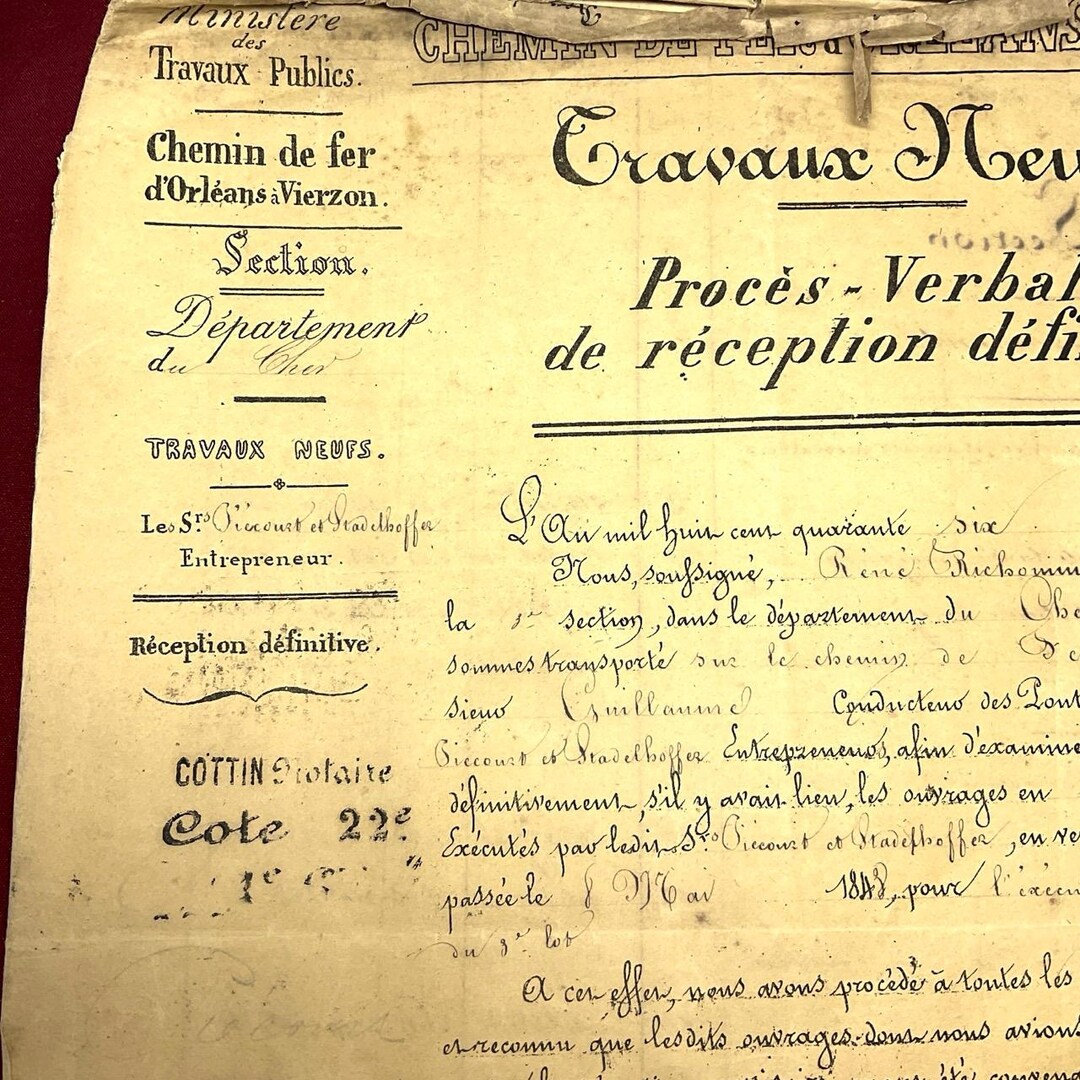 Ministère
des
Travaux Publics.
Chemin de fer
d'Orléans à Vierzon.
Section.
Département
du Cher
TRAVAUX NEUFS.
Les Srs Piccourt et Stadelhoffer
Entrepreneur.
Réception définitive.
COTTIN Notaire
Cote 22e
CHEMIN DE FER
Travaux Neu
Procès-Verbal
de réception défi
L'An mil huit cent quarante six
Nous, soussigné, Réné Richomm
la 3e section, dans le département du Che
sommes transporté sur le chemin de
sieur Guillaume Conducteur des Pont
Piccourt et Stadelhoffer Entrepreneurs, afin d'examine
définitivement, s'il y avait lieu, les ouvrages en
Exécutés par ledit Srs Piccourt et Stadelhoffer, en ve
passée le 8 Mai 1843, pour l'exécu
du 3e lot
A cet effet, nous avons procédé à toutes les
et reconnu que lesdits ouvrages dont nous avions
été convena